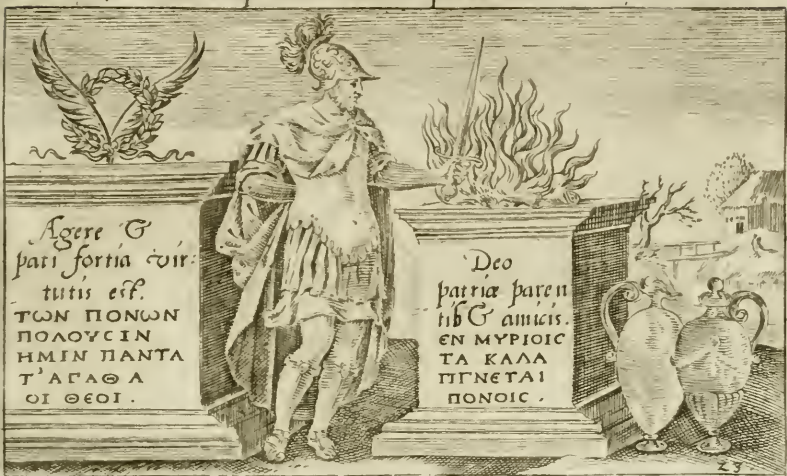 Agere &
pati fortia vir:
tutis est.
ΤΩΝ ΠΟΝΩΝ
ΠΟΛΟΥCΙΝ
ΗΜΙΝ ΠΑΝΤΑ
Τ'ΑΓΑΘΑ
ΟΙ ΘΕΟΙ.
Deo
patriæ paren
tib & amicis.
ΕΝ ΜΥΡΙΟΙC
ΤΑ ΚΑΛΑ
ΠΓΝΕΤΑΙ
ΠΟΝΟΙC.
23